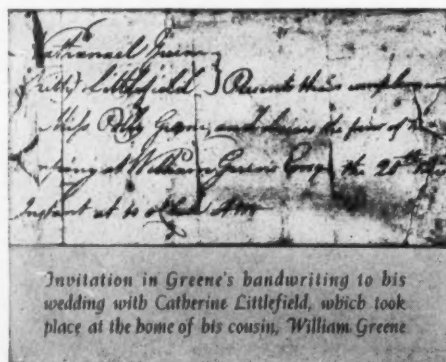 Nathanael Greene
Littlefield } Presents their
Miss Polly Greene and desires the favour of
at William Greene's Esqr. the 20th
Instant at 10 o'Clock AM
Invitation in Greene's handwriting to his
wedding with Catherine Littlefield, which took
place at the home of his cousin, William Greene